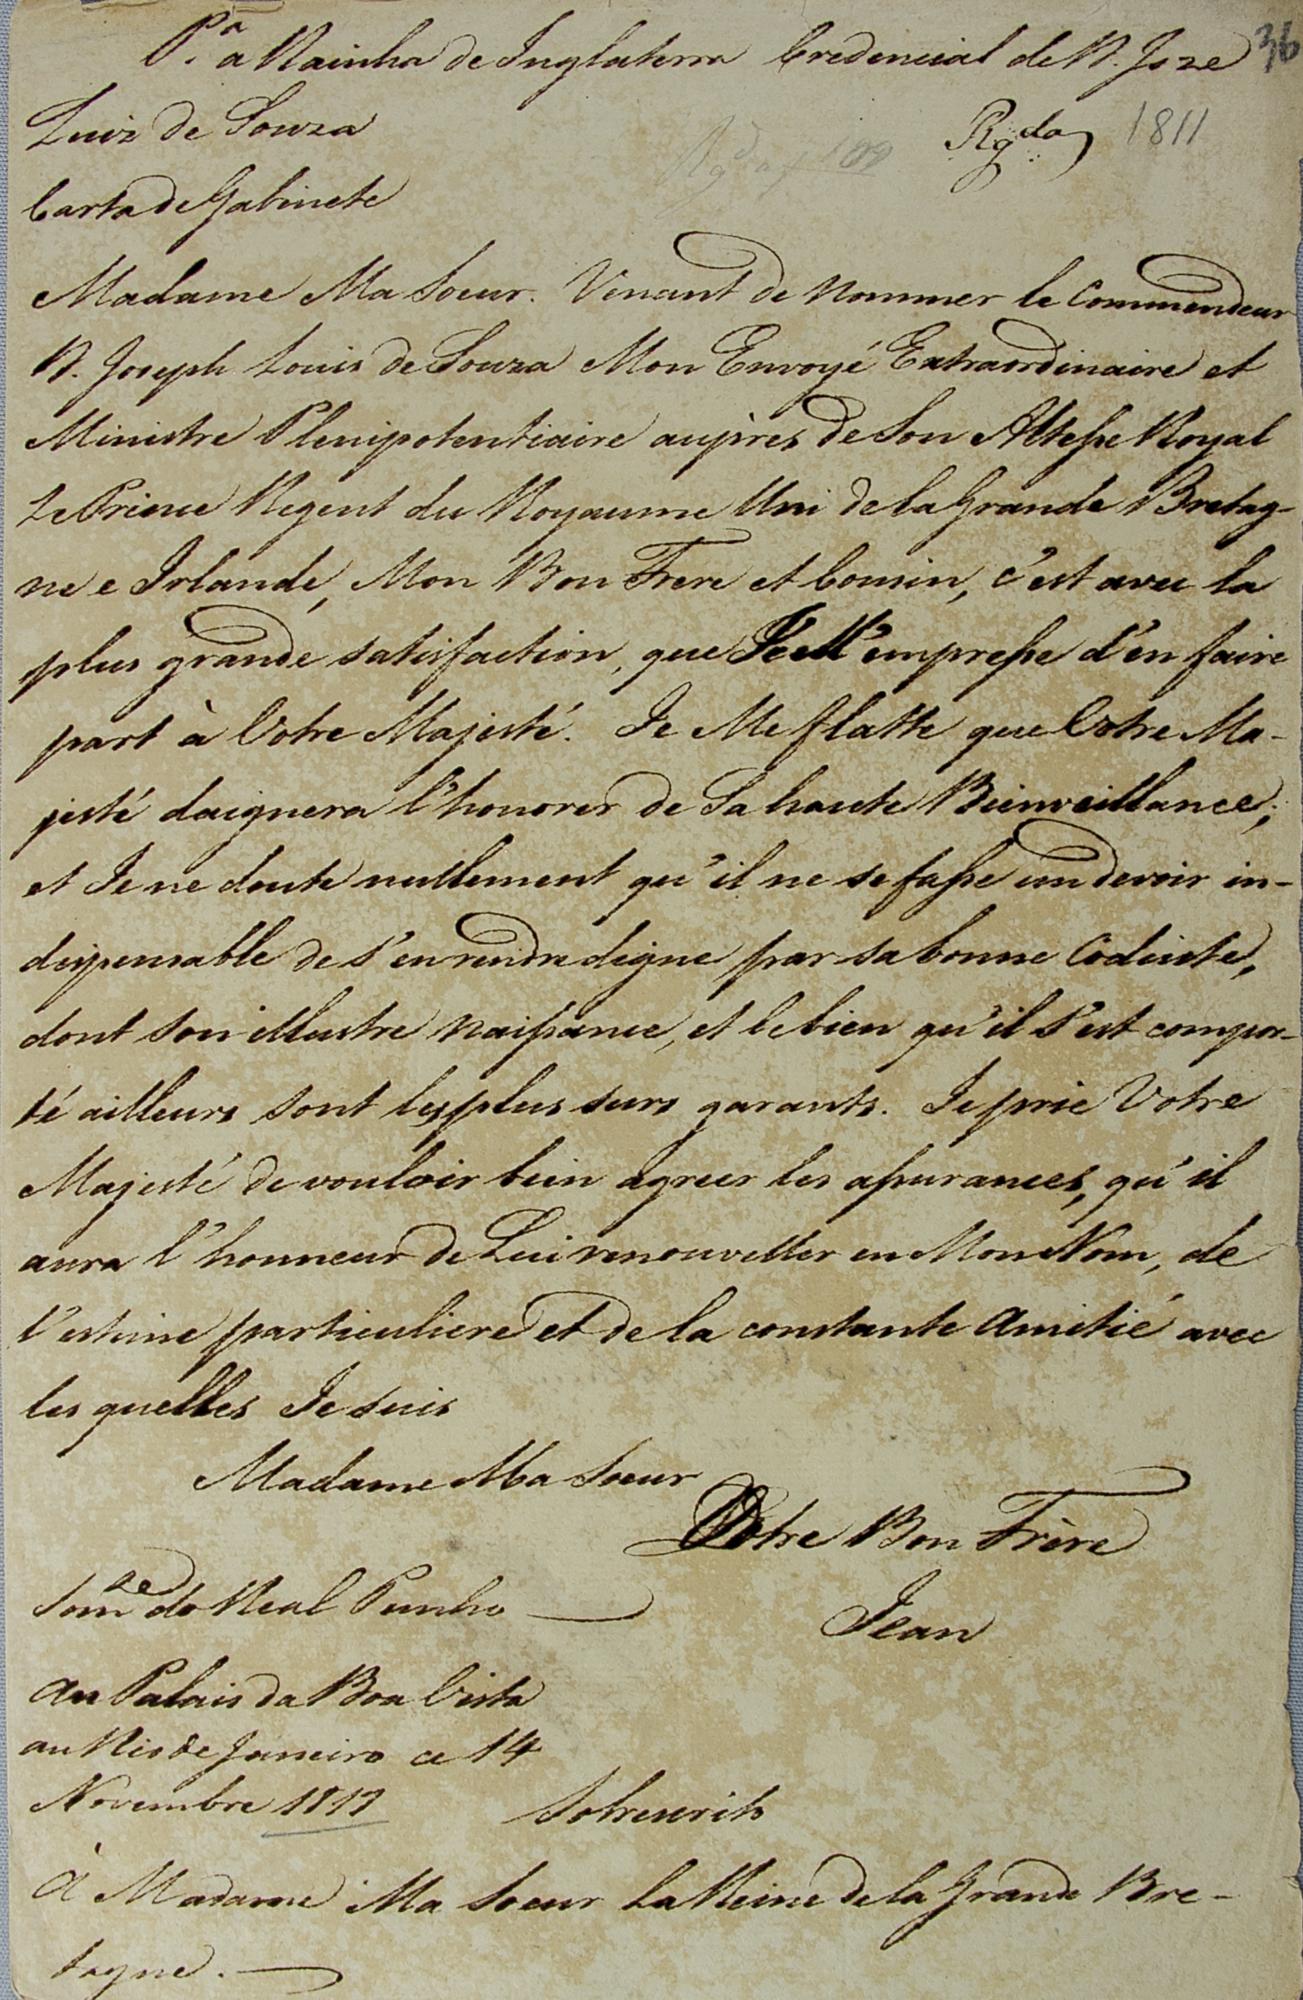 P.ª a Rainha de Inglaterra Credencial de D. Joze 36
Luiz de Souza
Rg.da 1811
Carta de Gabinete
Madame Ma Soeur. Venant de nommer le Commendeur
D. Joseph Louis de Souza Mon Envoyé Extraordinaire et
Ministre Plenipotentiaire aupres de Son Altesse Royal
Le Prince Regent du Royaume Uni de la Grande Bretag-
ne e Irlande, Mon Bon Frere et Cousin, c'est avec la
plus grande satisfaction, que Je M'empresse d'en faire
part à Votre Majesté. Je Me flatte que Votre Ma-
jesté daignera l'honorer de Sa haute Bienveillance;
et Je ne doute nullement qu'il ne se fasse un devoir in-
dispensable de s'en rendre digne par sa bonne Coduite,
dont son illustre naissance, et le bien qu'il s'est compor-
té ailleurs sont les plus surs garants. Je prie Votre
Majesté de vouloir bien agreer les assurances, qu'il
aura l'honneur de Lui renouveller en Mon Nom, de
l'estime particuliere et de la constante Amitié avec
les quelles Je suis
Madame Ma Soeur
Votre Bon Frère
Som.te do Real Punho
Jean
Au Palais da Boa Vista
au Rio de Janeiro ce 14
Novembre 1817
Sobrescrito
À Madame Ma Soeur La Reine de la Grande Bre-
tagne.